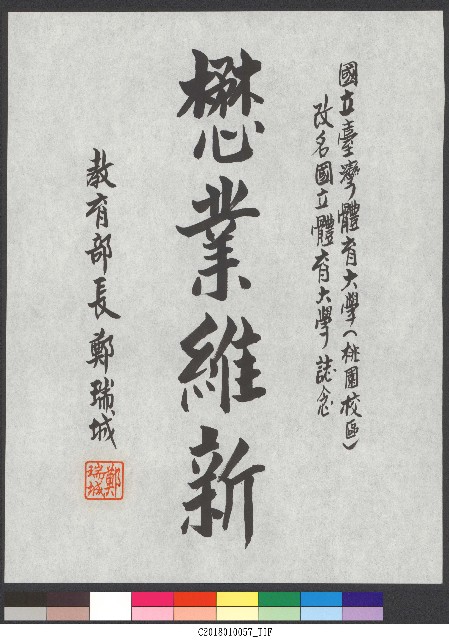 國立臺灣體育大學(桃園校區)
改名國立體育大學誌念
懋業維新
教育部長鄭瑞城
鄭瑞城
C2018010057_TIF